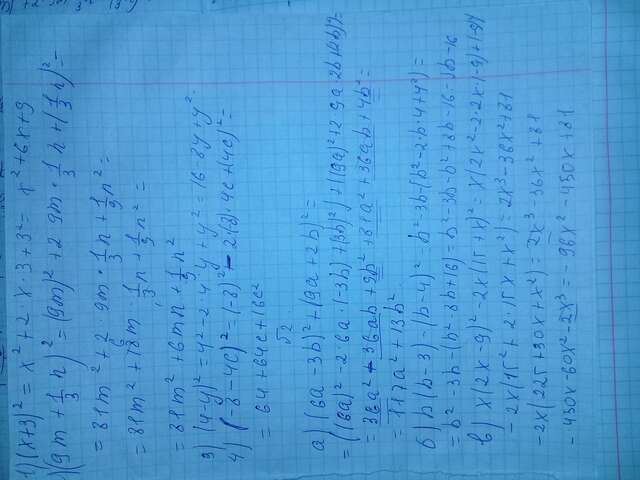 1) (x+3)² = x² + 2·x·3 + 3² = x² + 6x + 9
(9m + 1/3 n)² = (9m)² + 2·9m · 1/3 n + (1/3 n)² =
= 81m² + 2·9m · 1/3 n + 1/9 n² =
= 81m² + 18m · 1/3 n + 1/9 n² =
= 81m² + 6mn + 1/9 n²
3) (4-y)² = 4² - 2·4·y + y² = 16 - 8y + y²
4) (-8-4c)² = (-8)² - 2·(8)·4c + (4c)² =
= 64 + 64c + 16c²
√2
а) (6a - 3b)² + (9a + 2b)² =
= ((6a)² - 2·6a·(-3b) + (3b)²) + ((9a)² + 2·9a·2b + (2b)²) =
= 36a² - 36ab + 9b² + 81a² + 36ab + 4b² =
= 117a² + 13b²
б) b(b-3) - (b-4)² = b² - 3b - (b² - 2·b·4 + 4²) =
= b² - 3b - (b² - 8b + 16) = b² - 3b - b² + 8b - 16 = 5b - 16
в) x(2x-9)² - 2x(15+x)² = x(2x² - 2·2x·(-9) + (-9)²)
- 2x(15² + 2·15x + x²) = 2x³ - 36x² + 81
- 2x(225 + 30x + x²) = 2x³ - 36x² + 81
- 450x - 60x² - 2x³ = - 96x² - 450x + 81